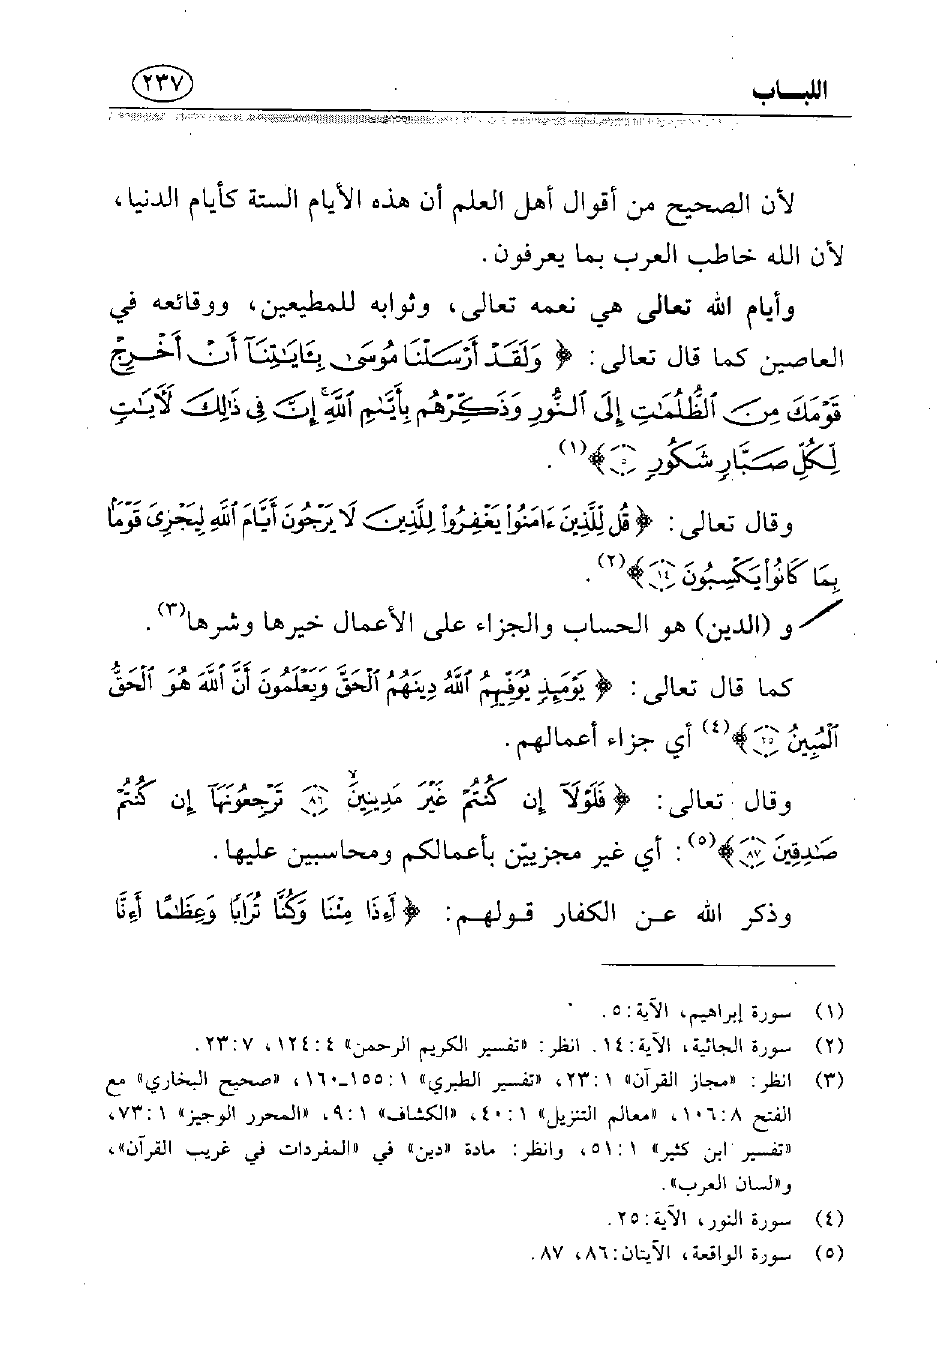 اللبـــاب
٢٣٧
لأن الصحيح من أقوال أهل العلم أن هذه الأيام الستة كأيام الدنيا،
لأن الله خاطب العرب بما يعرفون.
وأيام الله تعالى هي نعمه تعالى، وثوابه للمطيعين، ووقائعه في
العاصين كما قال تعالى: ﴿ وَلَقَدْ أَرْسَلْنَا مُوسَىٰ بِـَٔايَـٰتِنَآ أَنْ أَخْرِجْ
قَوْمَكَ مِنَ ٱلظُّلُمَـٰتِ إِلَى ٱلنُّورِ وَذَكِّرْهُم بِأَيَّىٰمِ ٱللَّهِ ۚ إِنَّ فِى ذَٰلِكَ لَـَٔايَـٰتٍ
لِّكُلِّ صَبَّارٍ شَكُورٍ ٥ ﴾(١).
وقال تعالى: ﴿ قُل لِّلَّذِينَ ءَامَنُوا۟ يَغْفِرُوا۟ لِلَّذِينَ لَا يَرْجُونَ أَيَّامَ ٱللَّهِ لِيَجْزِىَ قَوْمًۢا
بِمَا كَانُوا۟ يَكْسِبُونَ ١٤ ﴾(٢).
و (الدين) هو الحساب والجزاء على الأعمال خيرها وشرها(٣).
كما قال تعالى: ﴿ يَوْمَئِذٍ يُوَفِّيهِمُ ٱللَّهُ دِينَهُمُ ٱلْحَقَّ وَيَعْلَمُونَ أَنَّ ٱللَّهَ هُوَ ٱلْحَقُّ
ٱلْمُبِينُ ٢٥ ﴾(٤) أي جزاء أعمالهم.
وقال تعالى: ﴿ فَلَوْلَآ إِن كُنتُمْ غَيْرَ مَدِينِينَ ۙ ٨٦ تَرْجِعُونَهَآ إِن كُنتُمْ
صَـٰدِقِينَ ٨٧ ﴾(٥): أي غير مجزيّين بأعمالكم ومحاسبين عليها.
وذكر الله عن الكفار قولهم: ﴿ أَءِذَا مِتْنَا وَكُنَّا تُرَابًا وَعِظَـٰمًا أَءِنَّا
(١) سورة إبراهيم، الآية: ٥.
(٢) سورة الجاثية، الآية: ١٤. انظر: «تفسير الكريم الرحمن» ٤: ١٢٤، ٧: ٢٣.
(٣) انظر: «مجاز القرآن» ١: ٢٣، «تفسير الطبري» ١: ١٥٥ــ١٦٠، «صحيح البخاري» مع
الفتح ٨: ١٠٦، «معالم التنزيل» ١: ٤٠، «الكشاف» ١: ٩، «المحرر الوجيز» ١: ٧٣،
«تفسير ابن كثير» ١: ٥١، وانظر: مادة «دين» في «المفردات في غريب القرآن»،
و«لسان العرب».
(٤) سورة النور، الآية: ٢٥.
(٥) سورة الواقعة، الآيتان: ٨٦، ٨٧.